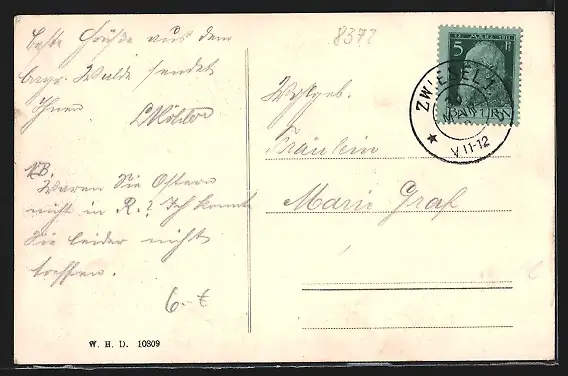 8372
Beste Grüße aus dem
bayr. Walde sendet
Ihnen
NB.
Waren Sie Ostern
nicht in R.? Ich konnte
Sie leider nicht
treffen.
6.-
W. H. D. 10809
12. MÄRZ 1911
5
ZWIESEL
V 11-12
BAYERN
Wohlgeb.
Fräulein
Marie Graf